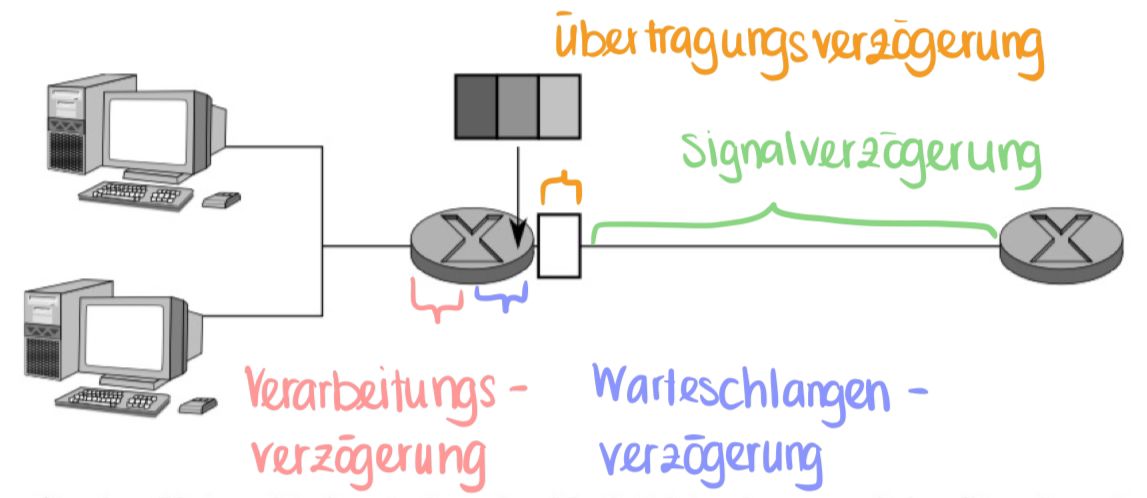 Übertragungsverzögerung
Signalverzögerung
Verarbeitungs-
verzögerung
Warteschlangen-
verzögerung